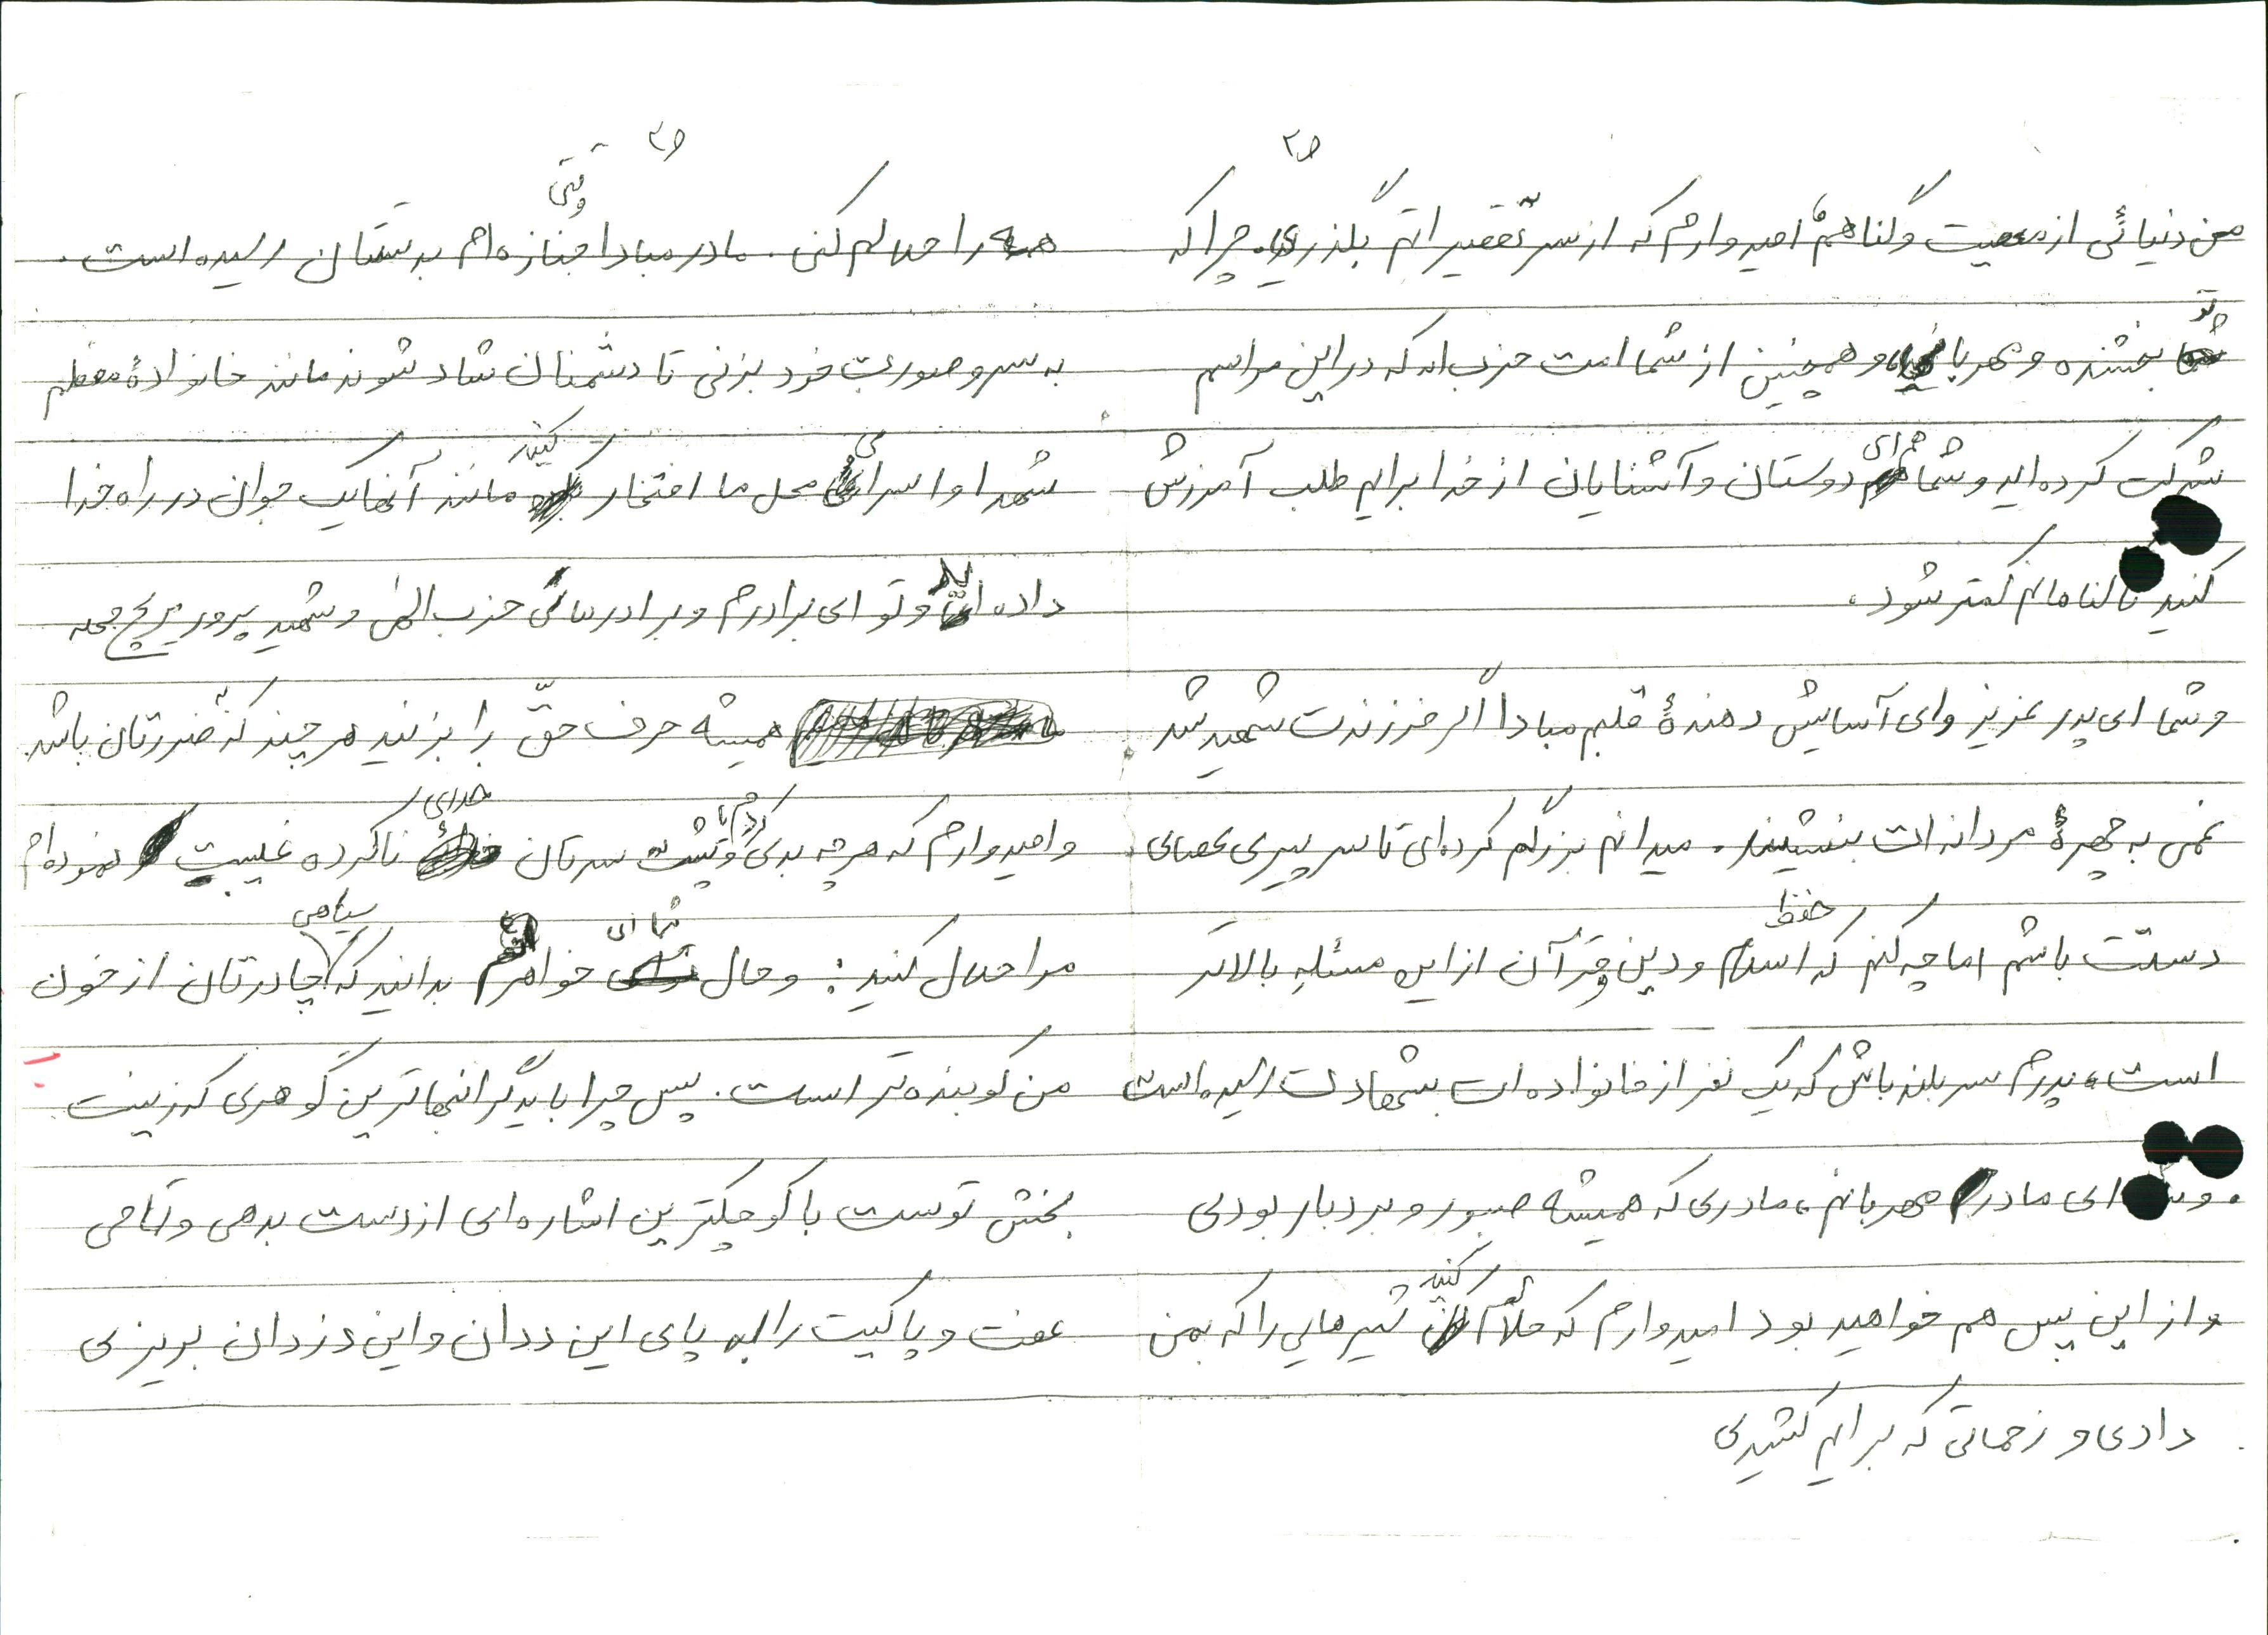 ص۲
من دنیائی از معصیت و گناهم امیدوارم که از سر تقصیراتم بگذری. چرا که
تو بخشنده و مهربانی و همچنین از شما امت حزب اله که در این مراسم
شرکت کرده اید و شما ای دوستان و آشنایان از خدا برایم طلب آمرزش
کنید تا گناهانم کمتر شود.
و شما ای پدر عزیز وای آسایش دهندهٔ قلبم مبادا اگر فرزندت شهید شد
غمی به چهرهٔ مردانه ات بنشیند. میدانم بزرگم کرده ای تا سر پیری عصای
دستت باشم اما چه کنم که حفظ اسلام و دین و قرآن از این مسئله بالاتر
است، پدرم سربلند باش که یک نفر از خانواده ات بشهادت رسیده است
. و ای مادر مهربانم، مادری که همیشه صبور و بردبار بودی
و از این پس هم خواهید بود امیدوارم که حلالم کنید شیرهایی را که بمن
دادی و زحماتی که برایم کشیدی
ص۳
همه را حلالم کنی. مادر مبادا وقتی جنازه ام بدستتان رسیده است.
به سر و صورت خود بزنی تا دشمنان شاد شوند مانند خانوادهٔ معظم
شهدا و اسرای محل ما افتخار کنید مانند آنها یک جوان در راه خدا
داده اید و تو ای برادرم و برادرهای حزب الهی و شهید پرور بریج محله
همیشه حرف حقّ را بزنید هر چند که به ضررتان باشد
و امیدوارم که هر چه بدی کردم یا پشت سرتان خدای ناکرده غیبت نموده ام
مرا حلال کنید: و حال شما ای خواهرم بدانید که سیاهی چادرتان از خون
من کوبنده تر است. پس چرا باید گرانبهاترین گوهری که زینت
بخش توست با کوچکترین اشاره ای از دست بدهی و تمامی
عفت و پاکیت را به پای این ددان و این دزدان بریزی